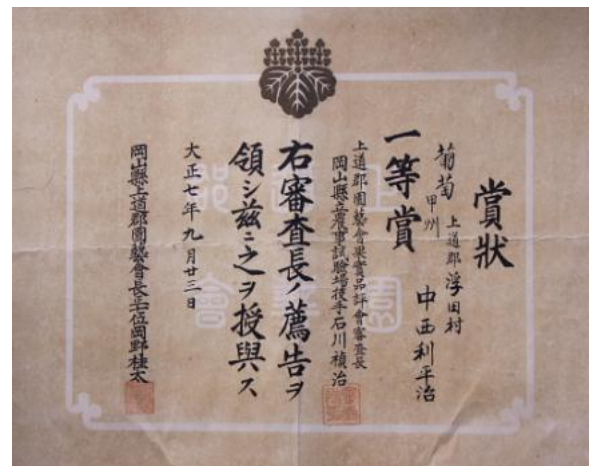 賞狀
上道郡浮田村
中西利平治
葡萄
甲州
一等賞
上道郡園藝會果實品評會審査長
岡山縣立農事試驗場技手石川禎治
右審查長ノ薦告ヲ
領シ茲ニ之ヲ授與ス
大正七年九月廿三日
岡山縣上道郡園藝會長正七位岡野桂太